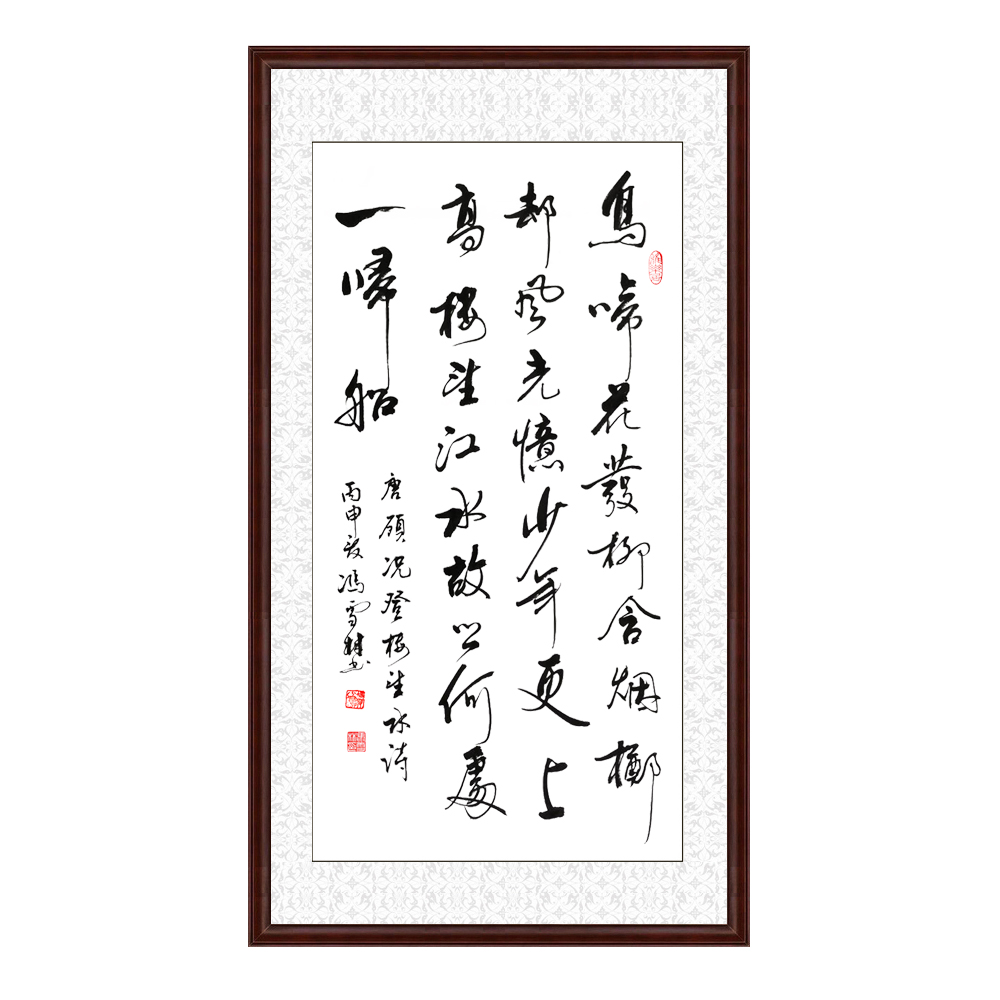 鳥啼花發柳含烟擲
却風光憶少年更上
高樓望江水故乡何處
一歸船
唐顧况登樓望水詩
丙申夏馮雪書